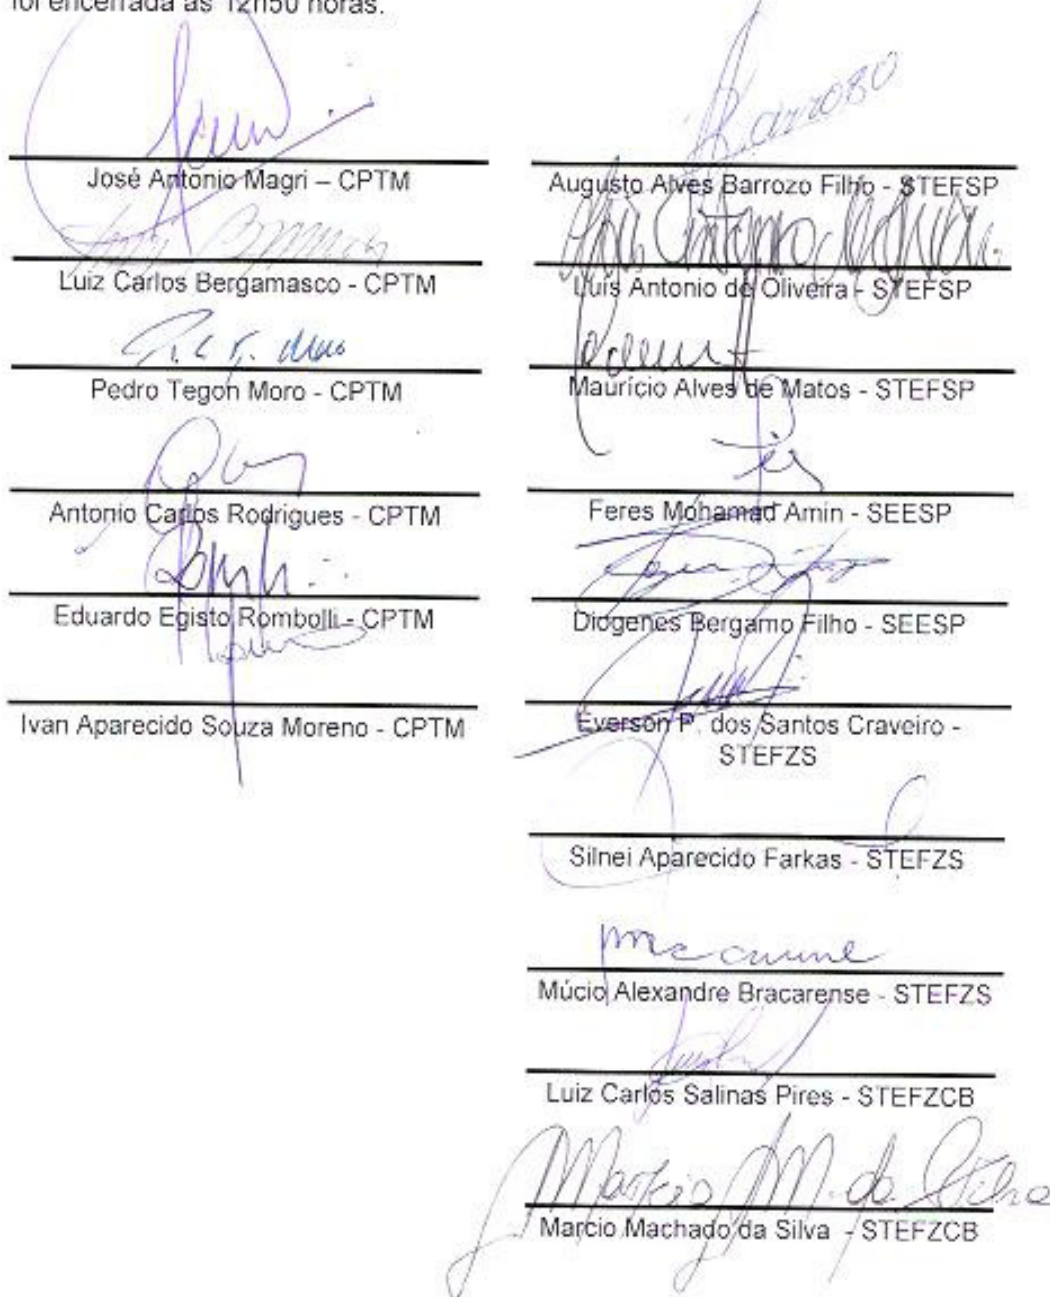 foi encerrada às 12h50 horas.
José Antônio Magri – CPTM
Luiz Carlos Bergamasco - CPTM
Pedro Tegon Moro - CPTM
Antonio Carlos Rodrigues - CPTM
Eduardo Egisto Rombolli - CPTM
Ivan Aparecido Souza Moreno - CPTM
Barrozo
Augusto Alves Barrozo Filho - STEFSP
Luis Antonio de Oliveira - STEFSP
Maurício Alves de Matos - STEFSP
Feres Mohamad Amin - SEESP
Diogenes Bergamo Filho - SEESP
Everson P. dos Santos Craveiro -
STEFZS
Silnei Aparecido Farkas - STEFZS
Múcio Alexandre Bracarense - STEFZS
Luiz Carlos Salinas Pires - STEFZCB
Marcio M. da Silva
Marcio Machado da Silva - STEFZCB